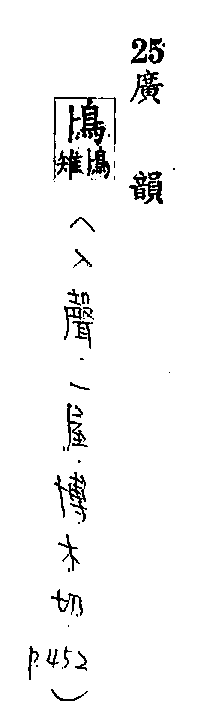 25廣韻
鳪鳪雉（入聲．一屋．博木切 p.452）